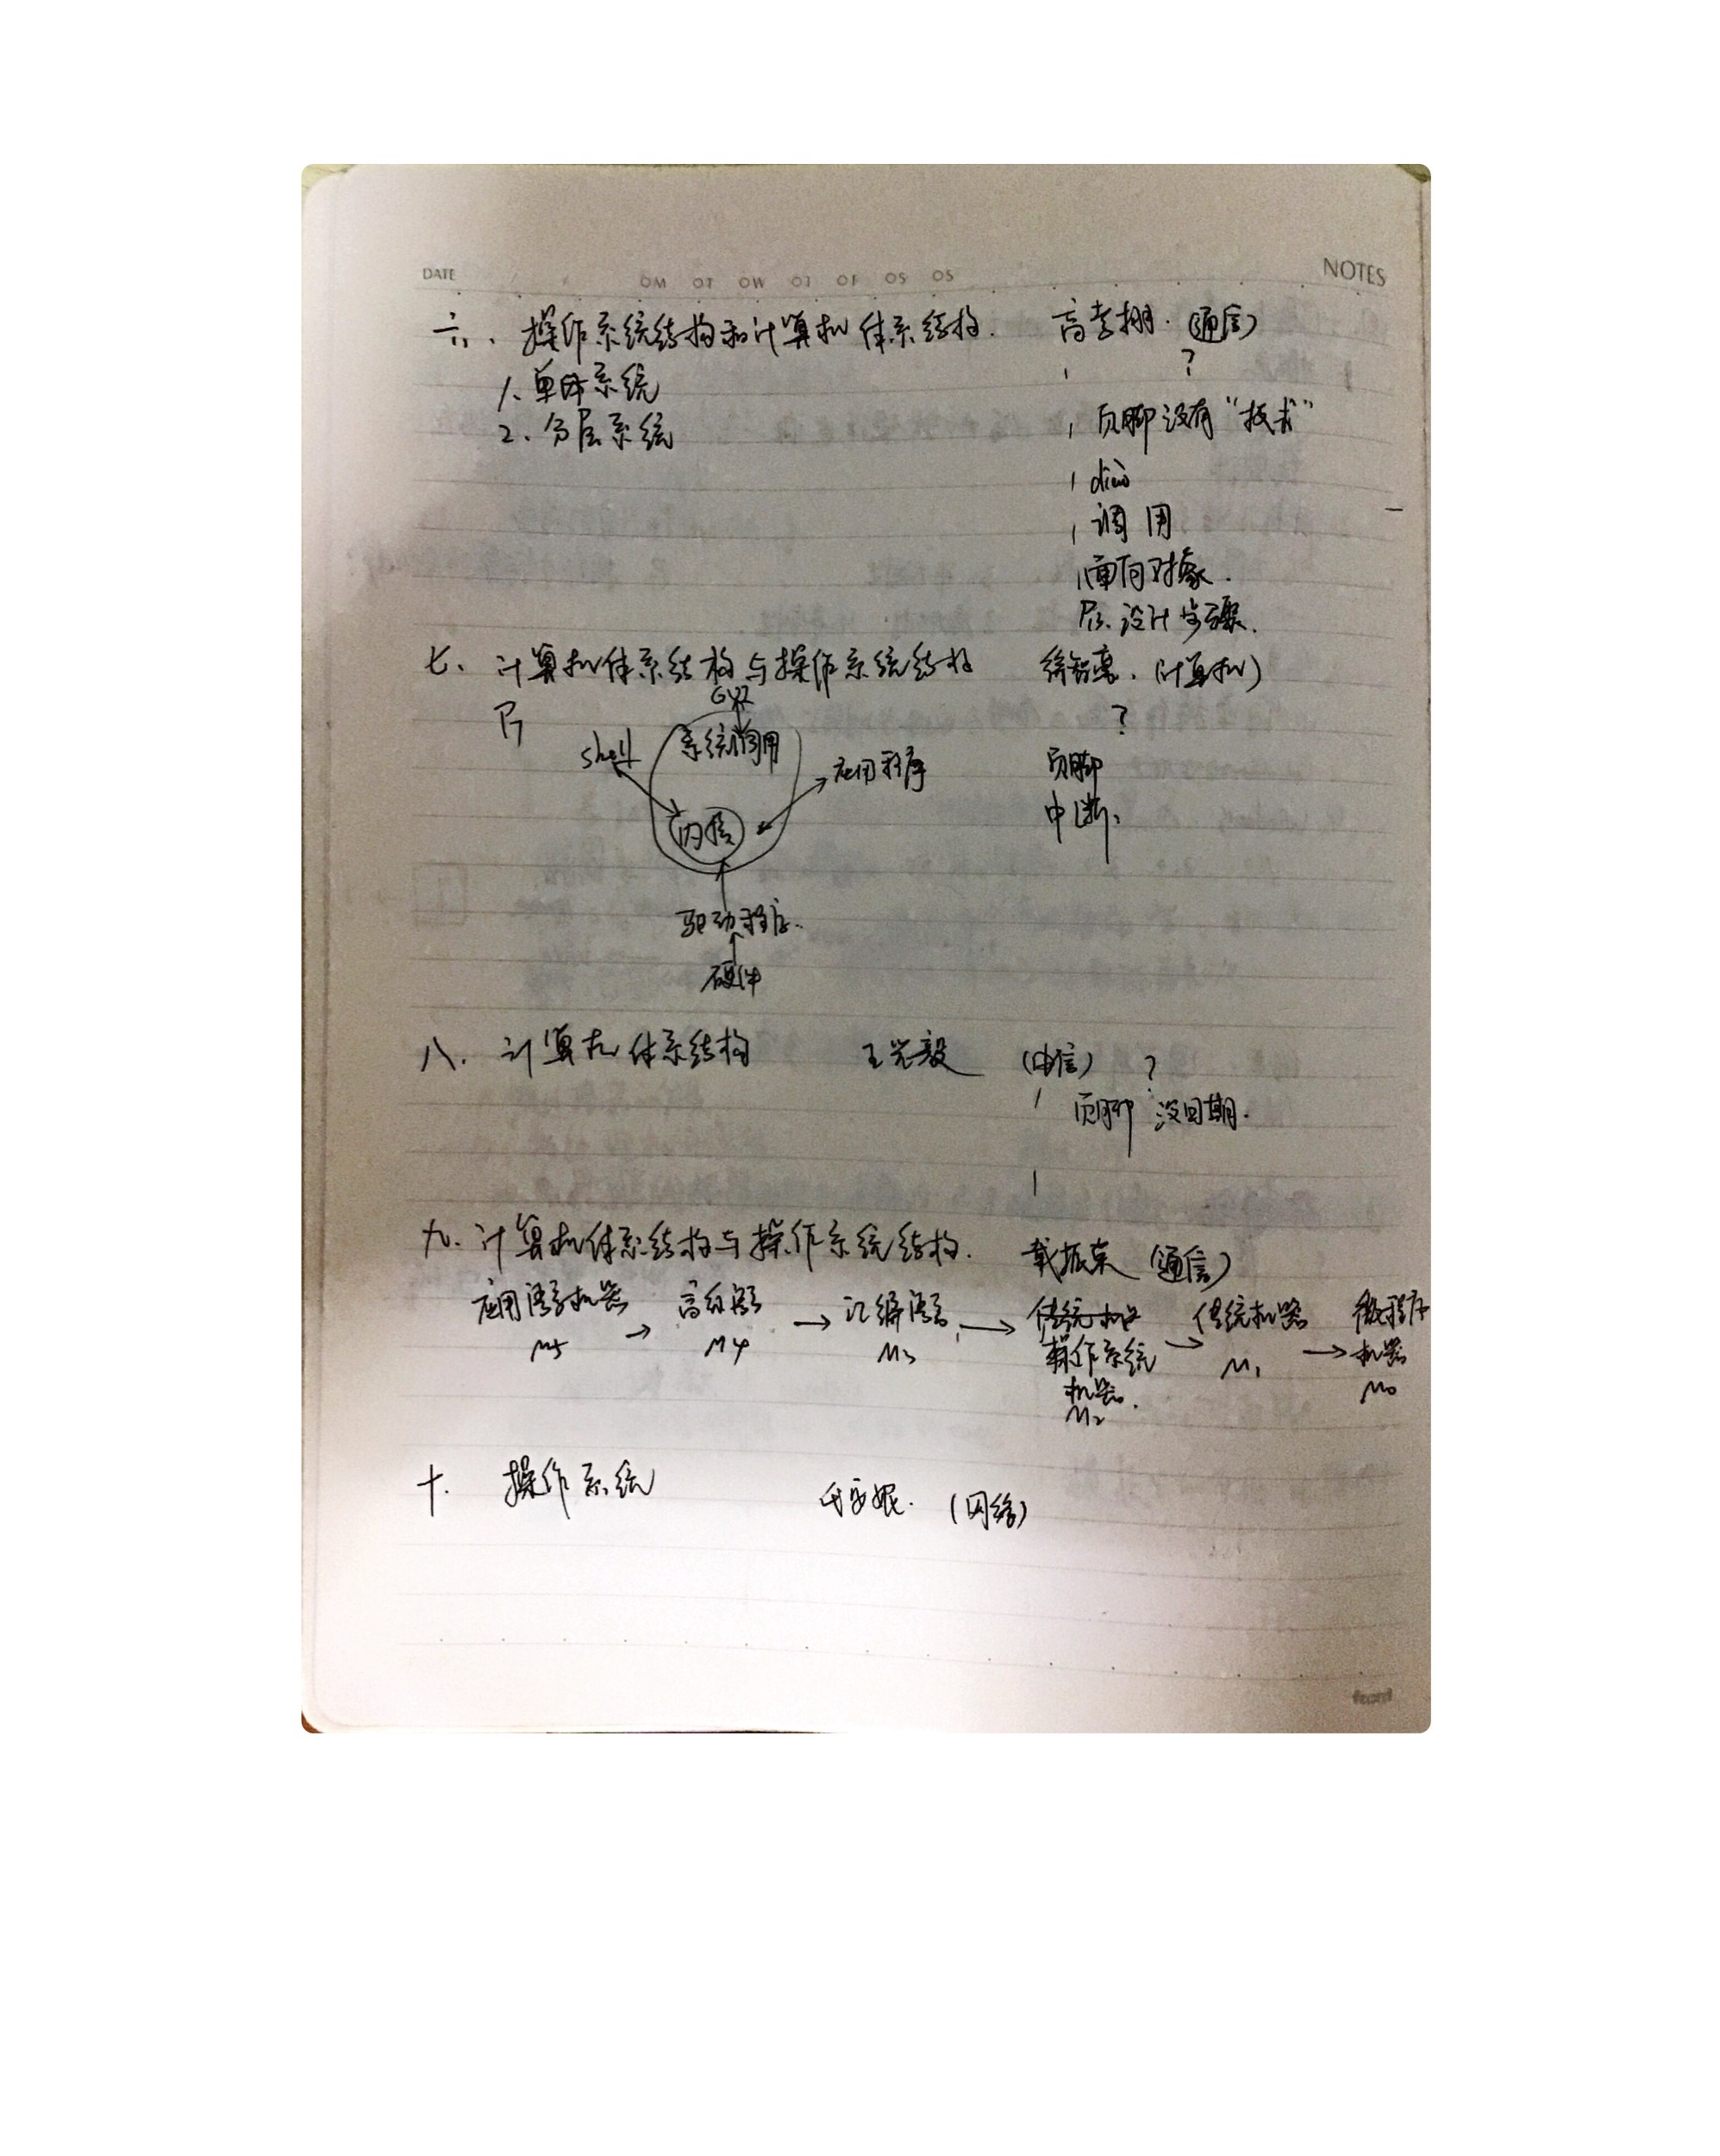 DATE OM OT OW OT OF OS OS NOTES
六、操作系统结构和计算机体系结构. 高孝栅. (通信)
1. 单体系统 ?
2. 分层系统 页脚没有“技术”
diao
调用
面向对象.
设计步骤.
七、计算机体系结构与操作系统结构 (计算机)
?
shell 系统调用 应用程序 页脚
内核 中断.
驱动程序.
硬件
八. 计算机体系结构 王光毅 (电信) ?
页脚 没日期.
九. 计算机体系结构与操作系统结构. 戴振东 (通信)
应用语言机器 M5 → 高级语言 M4 → 汇编语言 M3 → 操作系统机器. M2 → 传统机器 M1 → 微程序机器 M0
十. 操作系统 (网络)